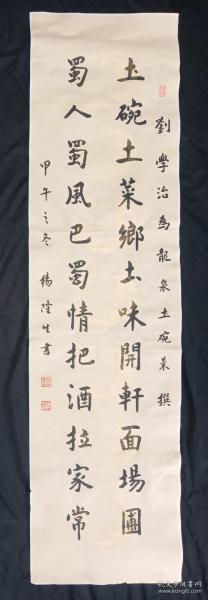 劉學治為龍泉土碗菜撰
土碗土菜鄉土味開軒面場圃
蜀人蜀風巴蜀情把酒拉家常
甲午之冬楊隆生書